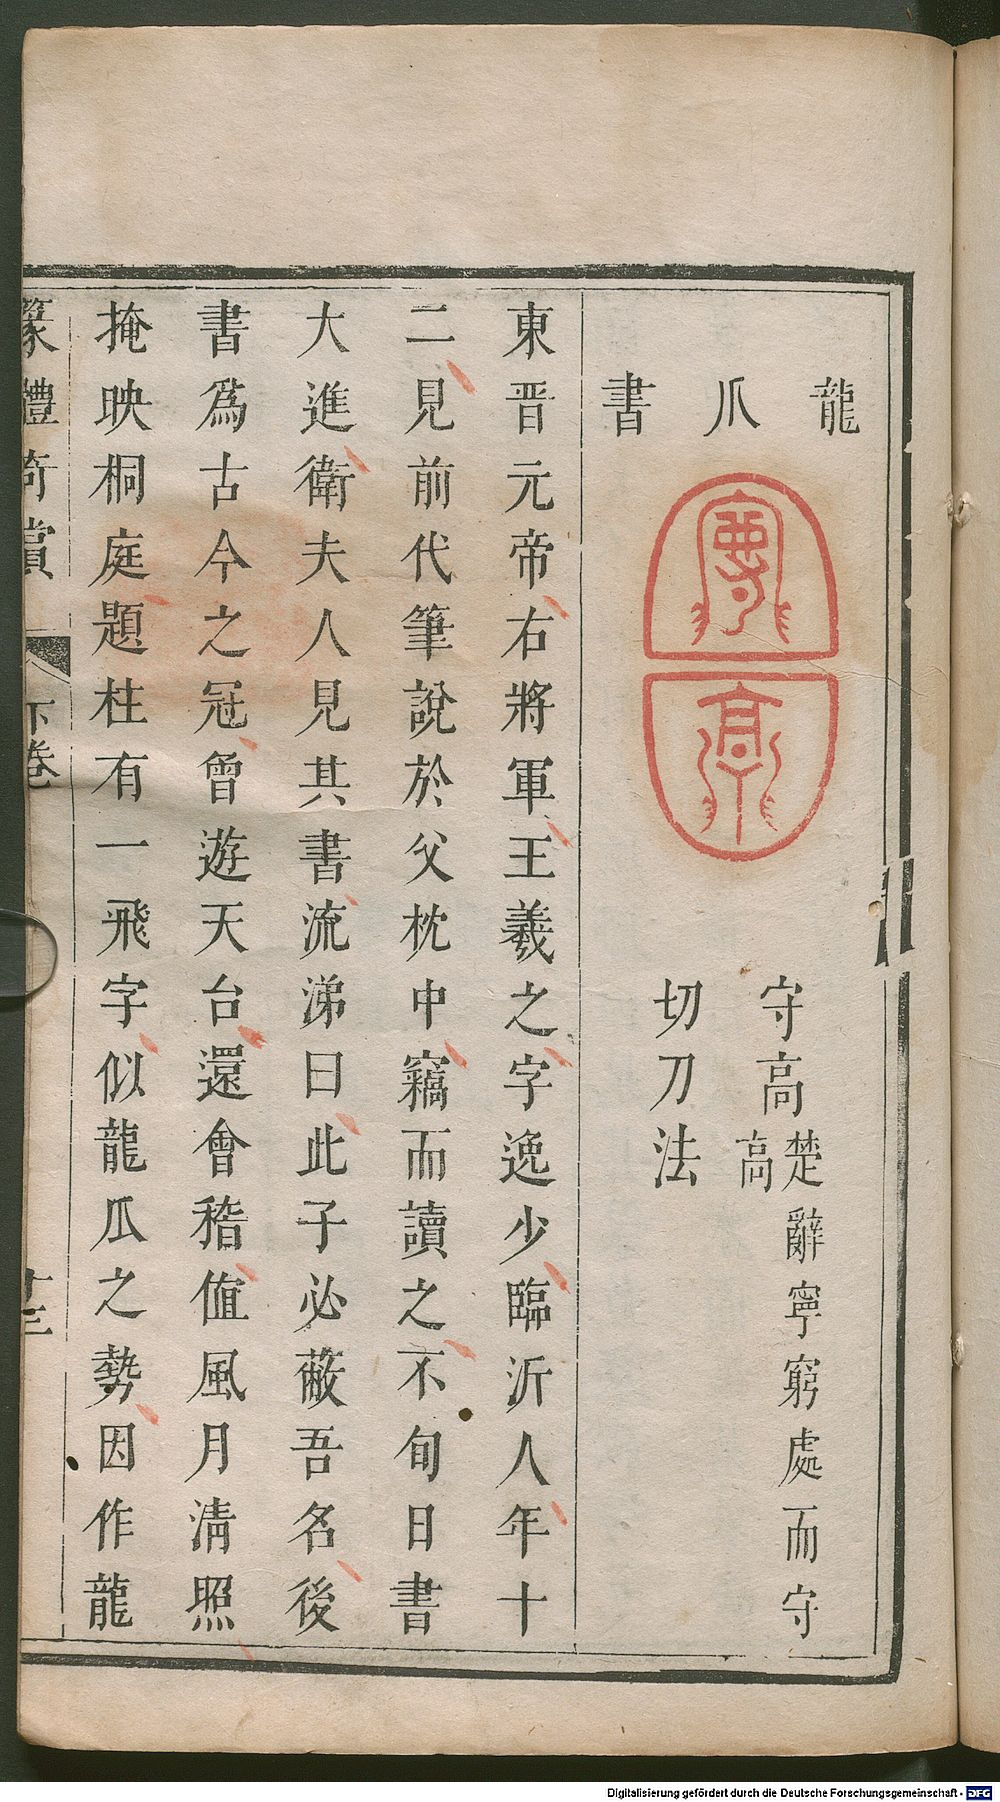 龍爪書
守高楚辭寧窮處而守高
切刀法
東晋元帝右將軍王羲之字逸少臨沂人年十
二見前代筆說於父枕中竊而讀之不旬日書
大進衛夫人見其書流涕曰此子必蔽吾名後
書爲古今之冠曾遊天台還會稽值風月清照
掩映桐庭題柱有一飛字似龍爪之勢因作龍
篆體奇賞 下卷 十三
Digitalisierung gefördert durch die Deutsche Forschungsgemeinschaft - DFG